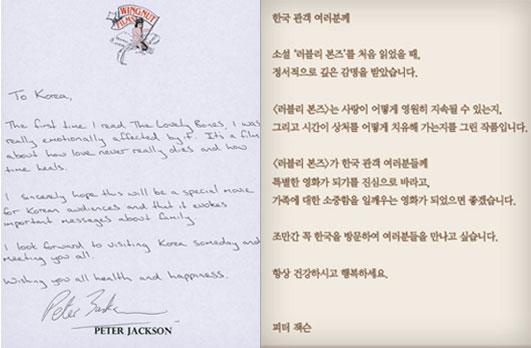 WINGNUT
FILMS
To Korea,
The first time I read The Lovely Bones, I was
really emotionally affected by it. It's a film
about how love never really dies and how
time heals.
I sincerely hope this will be a special movie
for Korean audiences and that it evokes
important messages about family.
I look forward to visiting Korea someday and
meeting you all.
Wishing you all health and happiness.
PETER JACKSON
한국 관객 여러분께
소설 '러블리 본즈'를 처음 읽었을 때,
정서적으로 깊은 감명을 받았습니다.
<러블리 본즈>는 사랑이 어떻게 영원히 지속될 수 있는지,
그리고 시간이 상처를 어떻게 치유해 가는지를 그린 작품입니다.
<러블리 본즈>가 한국 관객 여러분들께
특별한 영화가 되기를 진심으로 바라고,
가족에 대한 소중함을 일깨우는 영화가 되었으면 좋겠습니다.
조만간 꼭 한국을 방문하여 여러분들을 만나고 싶습니다.
항상 건강하시고 행복하세요.
피터 잭슨